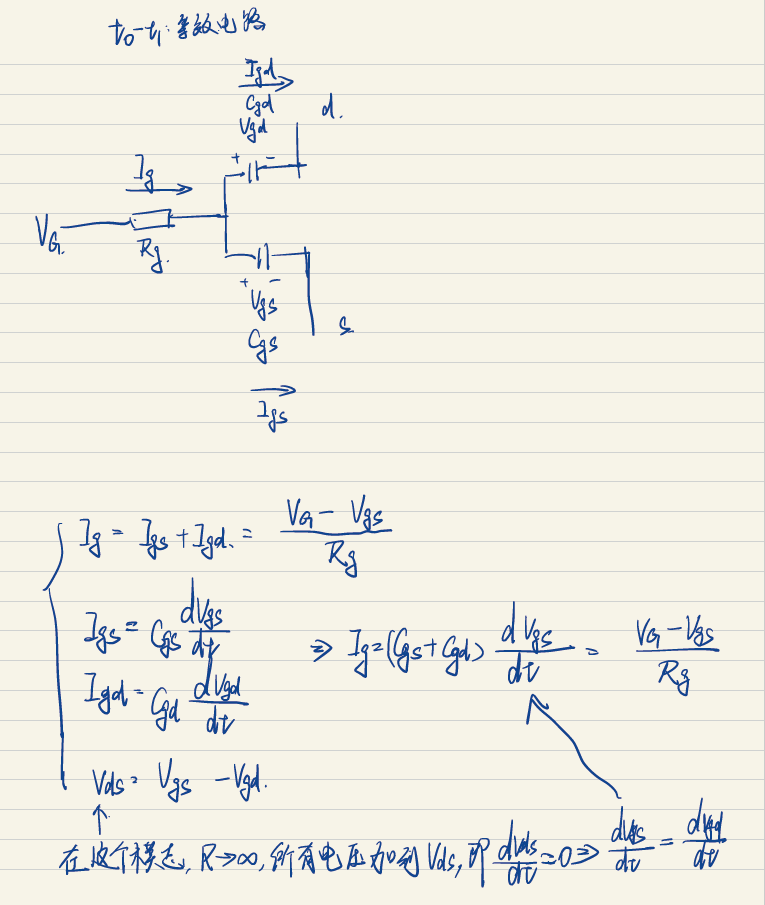 t₀-t₁: 等效电路
Igd
Cgd
Vgd
d.
+ -
Ig
VG.
Rg.
+ -
Vgs
s
Cgs
Igs
Ig = Igs + Igd. = (VG - Vgs) / Rg
Igs = Cgs dVgs/dt ⇒ Ig = (Cgs + Cgd) dVgs/dt = (VG - Vgs) / Rg
Igd = Cgd dVgd/dt
Vds = Vgs - Vgd.
在这个模态, R→∞, 所有电压加到 Vds, 即 dVds/dt = 0 ⇒ dVgs/dt = dVgd/dt